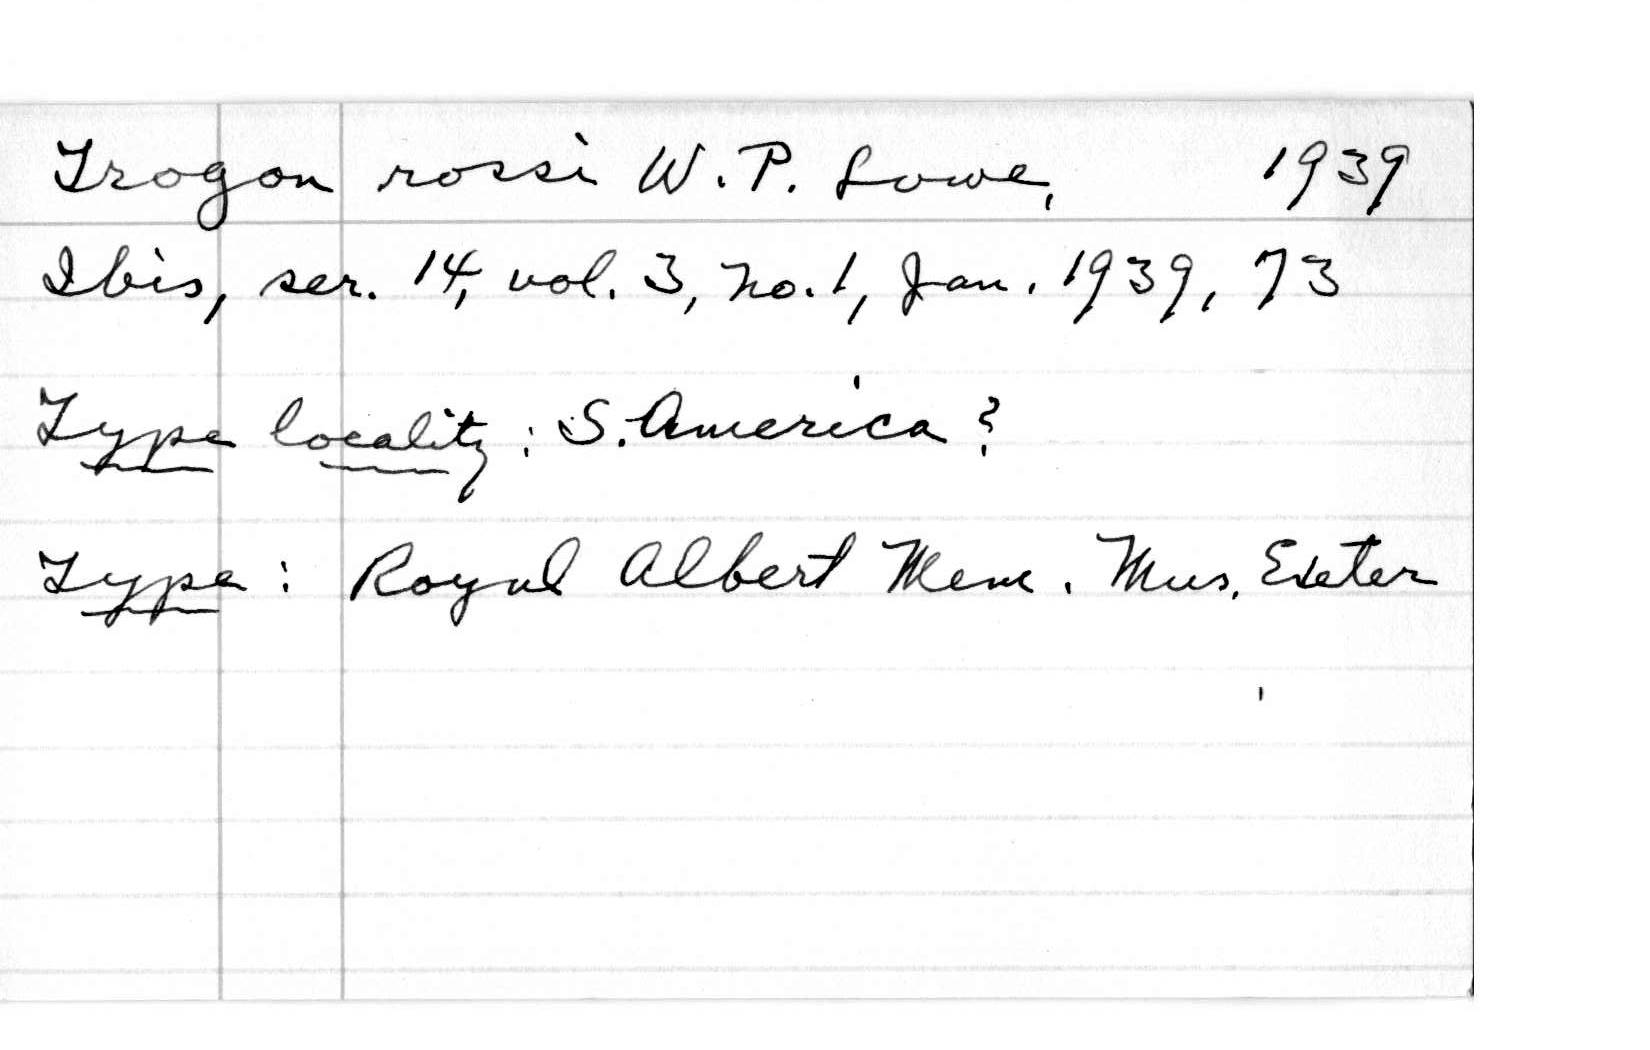 Trogon rossi W. P. Lowe, 1939
Ibis, ser. 14, vol. 3, no. 1, Jan. 1939, 73
Type locality: S. America?
Type: Royal Albert Mem. Mus. Exeter